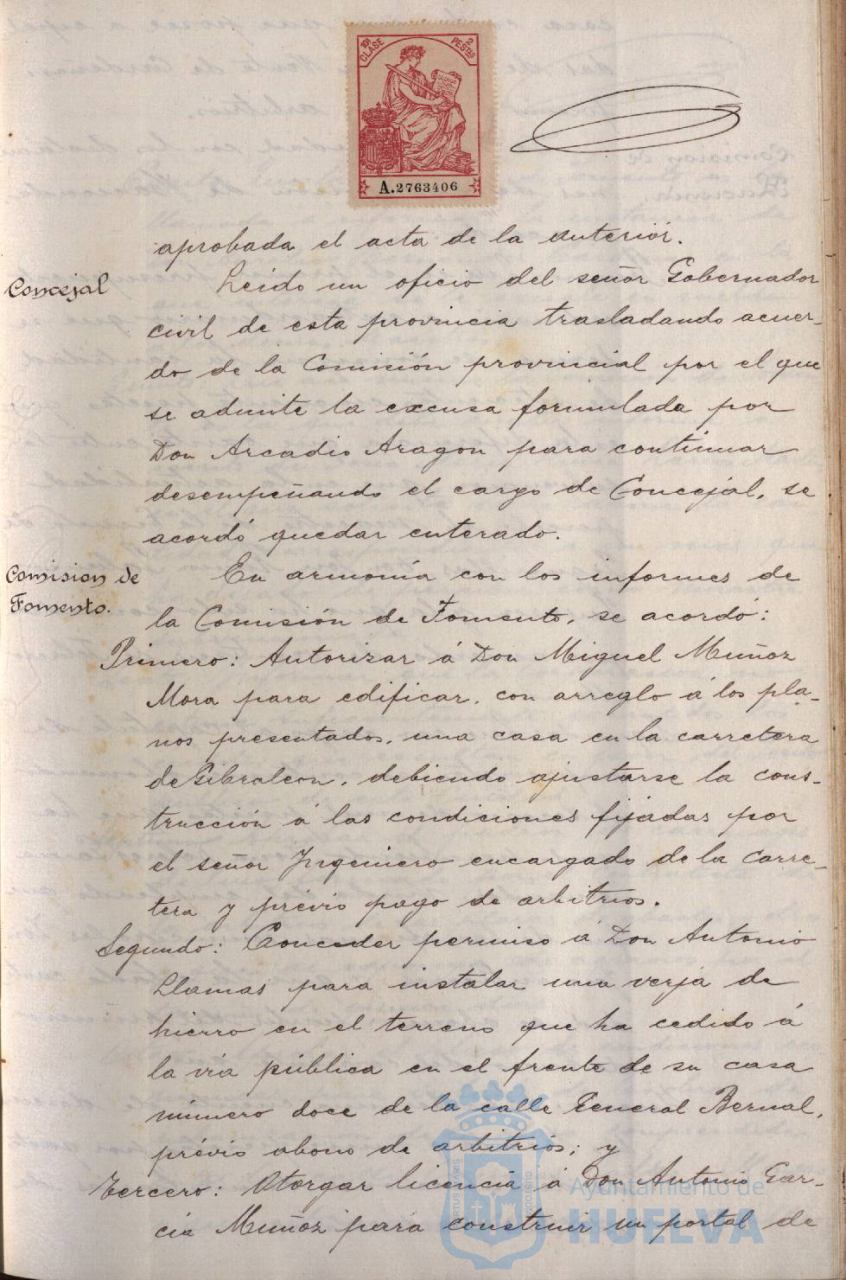 10ª CLASE 2 PESTAS
A.2763406
aprobada el acta de la anterior.
Concejal
Leido un oficio del señor Gobernador
civil de esta provincia trasladando acuer-
do de la Comisión provincial por el que
se admite la excusa formulada por
Don Arcadio Aragon para continuar
desempeñando el cargo de Concejal, se
acordó quedar enterado.
Comision de
Fomento.
En armonía con los informes de
la Comisión de Fomento, se acordó:
Primero: Autorizar á Don Miguel Muñoz
Mora para edificar, con arreglo á los pla-
nos presentados, una casa en la carretera
de Gibraleon, debiendo ajustarse la cons-
trucción á las condiciones fijadas por
el señor Ingeniero encargado de la carre-
tera y prévio pago de arbitrios.
Segundo: Conceder permiso á Don Antonio
Llamas para instalar una verja de
hierro en el terreno que ha cedido á
la vía pública en el frente de su casa
número doce de la calle General Bernal,
prévio abono de arbitrios; y
Tercero: Otorgar licencia á Don Antonio Gar-
cía Muñoz para construir un portal de
Ayuntamiento de
HUELVA